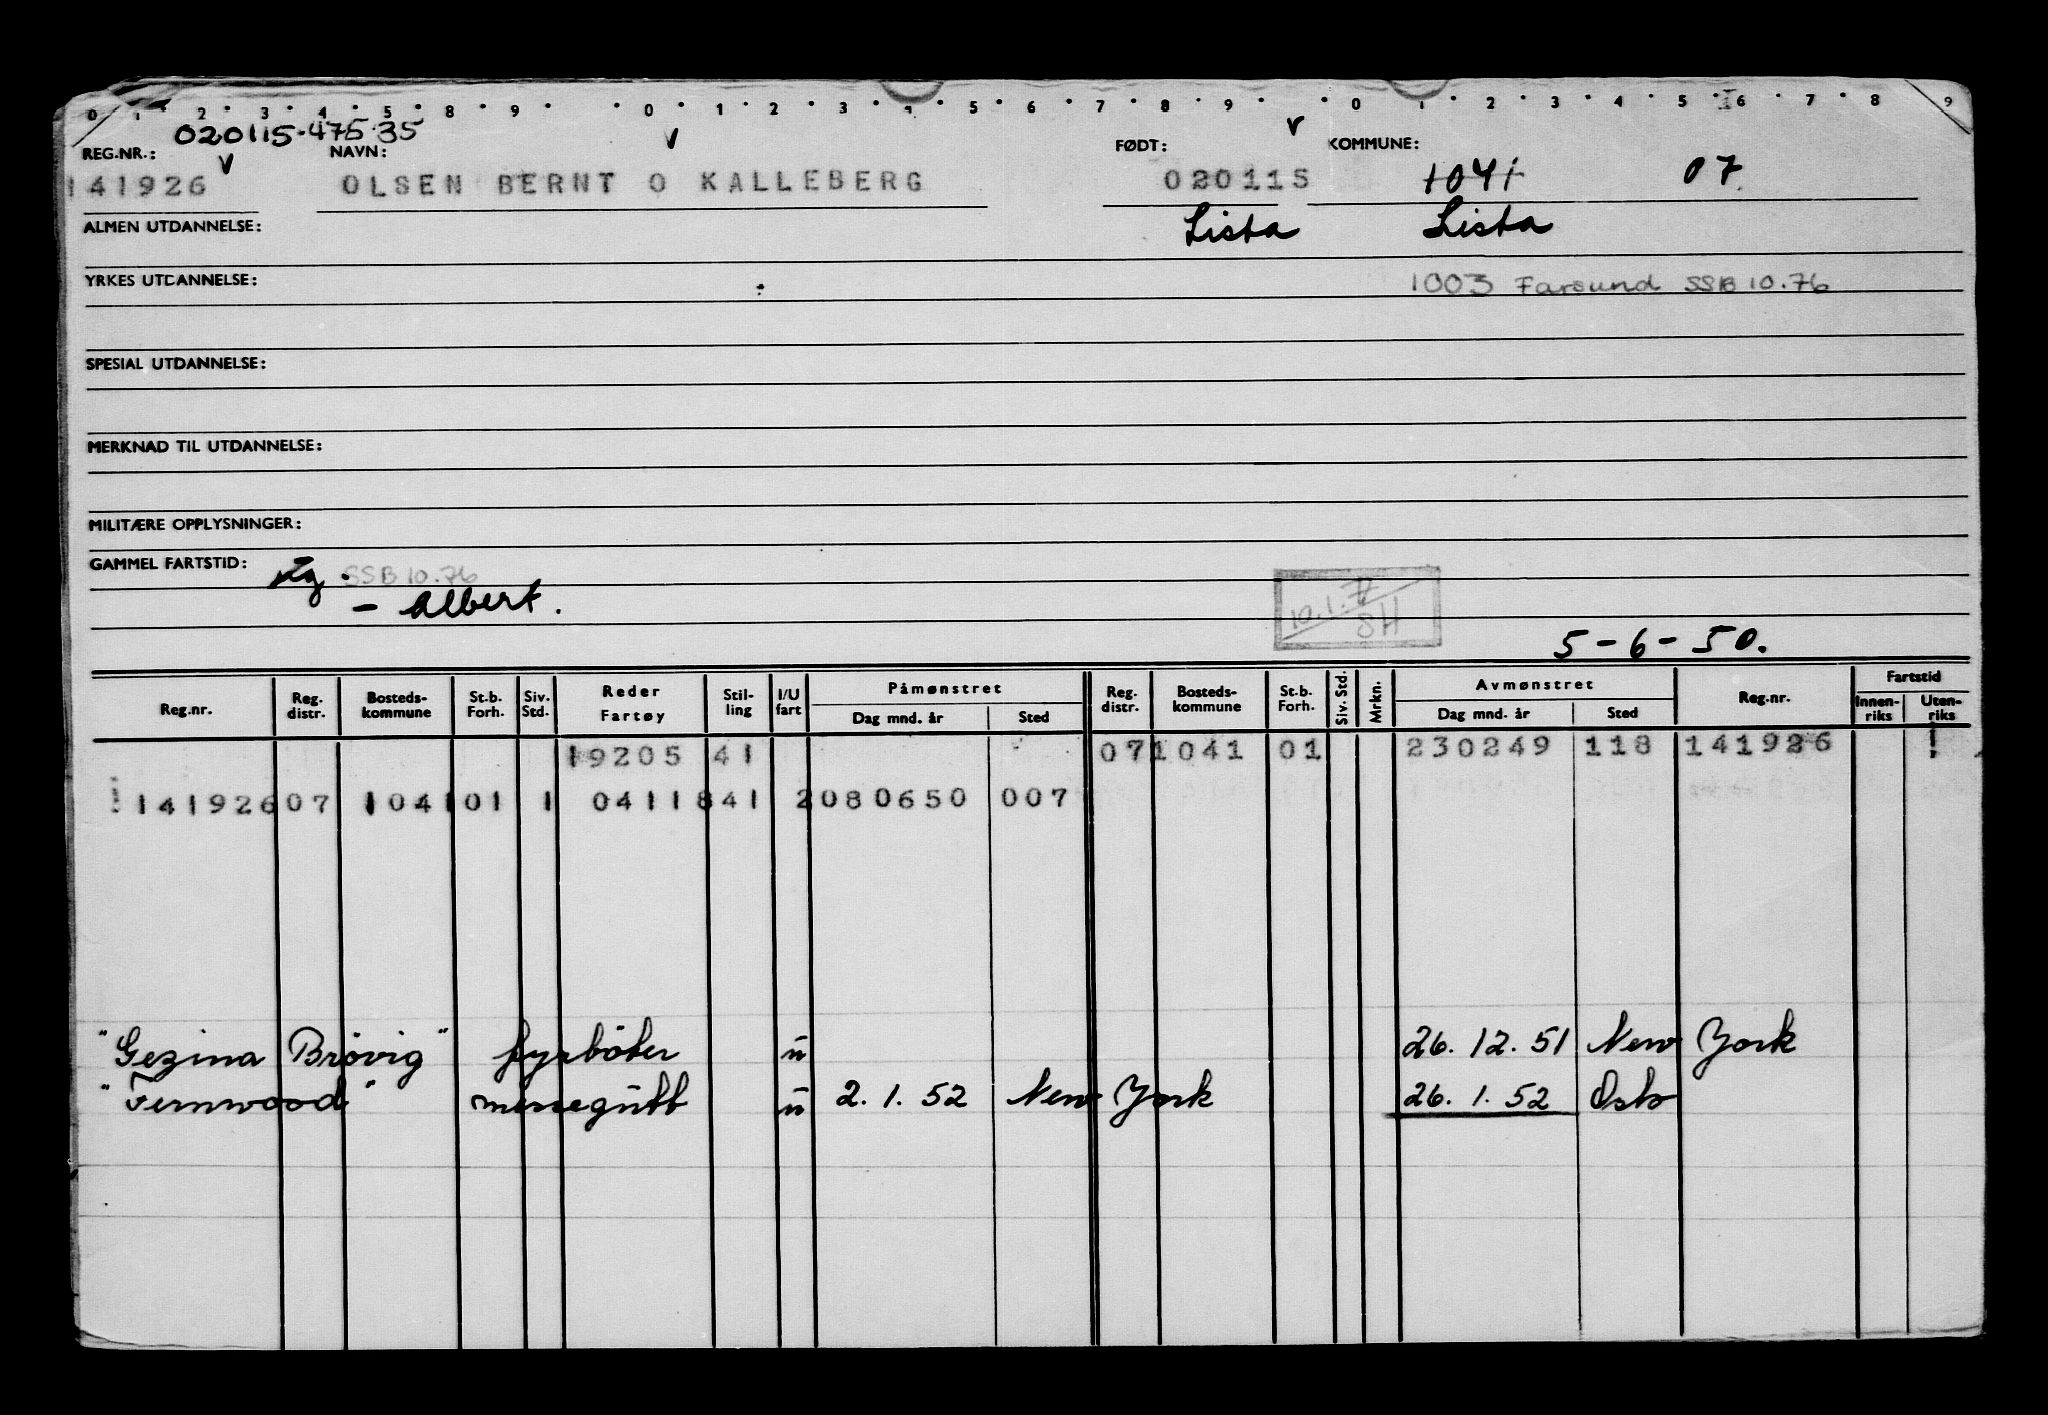 0 1 2 3 4 5 8 9 0 1 2 3 4 5 6 7 8 9 0 1 2 3 4 5 6 7 8 9
020115-47535
REG.NR.: NAVN: FØDT: KOMMUNE:
141926 OLSEN BERNT O KALLEBERG 020115 1041 07
ALMEN UTDANNELSE: Lista Lista
YRKES UTDANNELSE: 1003 Farsund SSB 10.76
SPESIAL UTDANNELSE:
MERKNAD TIL UTDANNELSE:
MILITÆRE OPPLYSNINGER:
GAMMEL FARTSTID: SSB 10.76
- Albert. 10.1.77 SH
5-6-50.
Reg.nr. Reg. distr. Bosteds-kommune St.b. Forh. Siv. Std. Reder Fartøy Stil-ling I/U fart Påmønstret Dag mnd. år Sted Reg. distr. Bosteds-kommune St.b. Forh. Siv. Std. Mrkn. Avmønstret Dag mnd. år Sted Reg.nr. Fartstid Innen-riks Uten-riks
19205 41 07 1041 01 230249 118 141926
141926 07 1041 01 1 04118 41 2 080650 007
"Gezina Brøvig" fyrbøter u 26.12.51 New York
"Fernwood" messegutt u 2.1.52 New York 26.1.52 Oslo